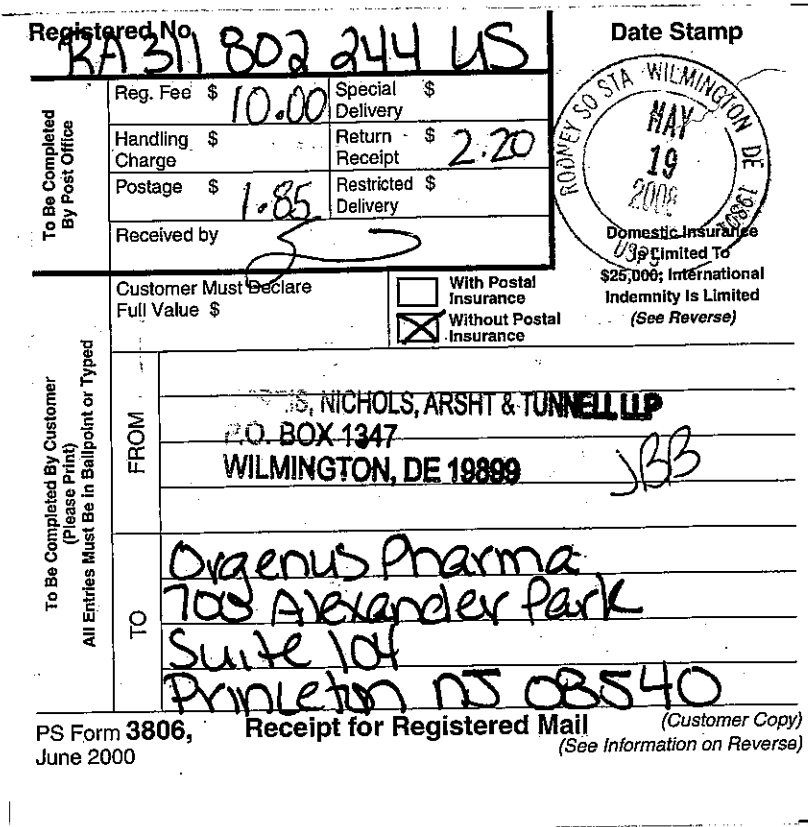 Registered No.
RA 311 802 244 US
Date Stamp
To Be Completed
By Post Office
Reg. Fee $ 10.00
Special Delivery $
Handling Charge $
Return Receipt $ 2.20
Postage $ 1.85
Restricted Delivery $
Received by
RODNEY SO STA WILMINGTON DE 19801
MAY
19
2008
USPS
Domestic Insurance
Is Limited To
$25,000; International
Indemnity Is Limited
(See Reverse)
Customer Must Declare
Full Value $
With Postal
Insurance
Without Postal
Insurance
To Be Completed By Customer
(Please Print)
All Entries Must Be in Ballpoint or Typed
FROM
NICHOLS, ARSHT & TUNNELL LLP
P.O. BOX 1347
WILMINGTON, DE 19899
JBB
TO
Orgenus Pharma
700 Alexander Park
Suite 104
Princeton NJ 08540
PS Form 3806,
June 2000
Receipt for Registered Mail
(Customer Copy)
(See Information on Reverse)